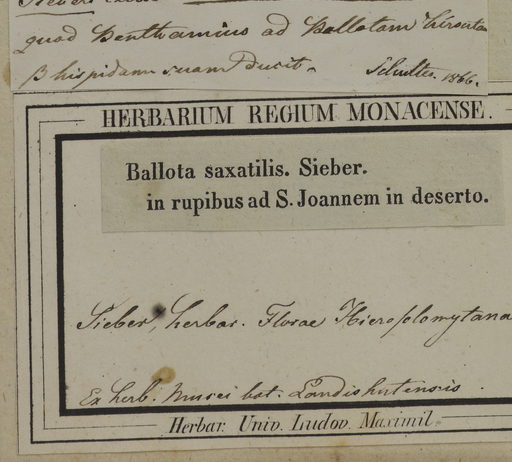 quod Benthamius ad Ballotam hirsutam
β hispidam suam Ducit. Schultes. 1866.
HERBARIUM REGIUM MONACENSE.
Ballota saxatilis. Sieber.
in rupibus ad S. Joannem in deserto.
Sieber, herbar. Florae Hierosolomytana
Ex herb. Musei bot. Landishutensis.
Herbar. Univ. Ludov. Maximil.